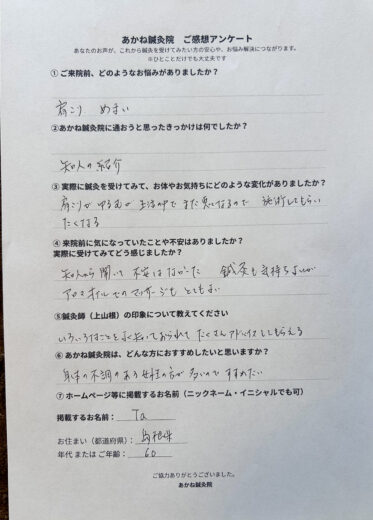 あかね鍼灸院 ご感想アンケート
あなたのお声が、これから鍼灸を受けてみたい方の安心や、お悩み解決につながります。
※ひとことだけでも大丈夫です
① ご来院前、どのようなお悩みがありましたか?
肩こり めまい
②あかね鍼灸院に通おうと思ったきっかけは何でしたか?
知人の紹介
③ 実際に鍼灸を受けてみて、お体やお気持ちにどのような変化がありましたか?
肩こりがゆるむが 生活の中でまた悪くなるので 施術してもらい
たくなる
④ 来院前に気になっていたことや不安はありましたか?
実際に受けてみてどう感じましたか?
知人から聞いて 不安はなかった 鍼灸も気持ちよいが
アロマオイルでのマッサージも とてもよい
⑤鍼灸師(上山根)の印象について教えてください
いろいろなことをよく知っておられて たくさんアドバイスしてもらえる
⑥ あかね鍼灸院は、どんな方におすすめしたいと思いますか?
身体の不調のある女性の方が多いので すすめたい
⑦ ホームページ等に掲載するお名前(ニックネーム・イニシャルでも可)
掲載するお名前: Ta
お住まい(都道府県): 島根県
年代 または ご年齢: 60
ご協力ありがとうございました。
あかね鍼灸院